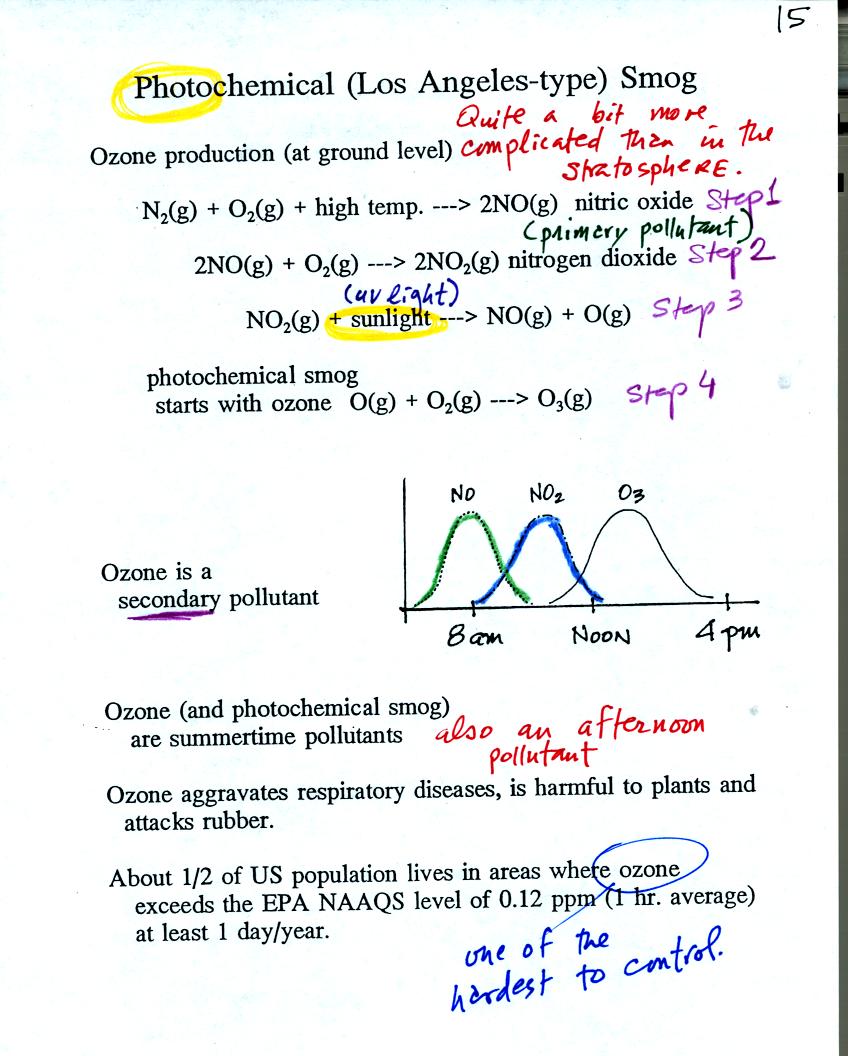 15
Photochemical (Los Angeles-type) Smog
Quite a bit more
Ozone production (at ground level) complicated than in the
stratosphere.
N₂(g) + O₂(g) + high temp. ---> 2NO(g) nitric oxide Step 1
(primary pollutant)
2NO(g) + O₂(g) ---> 2NO₂(g) nitrogen dioxide Step 2
(uv light)
NO₂(g) + sunlight ---> NO(g) + O(g) Step 3
photochemical smog
starts with ozone O(g) + O₂(g) ---> O₃(g) Step 4
NO NO₂ O₃
Ozone is a
secondary pollutant
8am NOON 4pm
Ozone (and photochemical smog)
are summertime pollutants also an afternoon
pollutant
Ozone aggravates respiratory diseases, is harmful to plants and
attacks rubber.
About 1/2 of US population lives in areas where ozone
exceeds the EPA NAAQS level of 0.12 ppm (1 hr. average)
at least 1 day/year.
one of the
hardest to control.